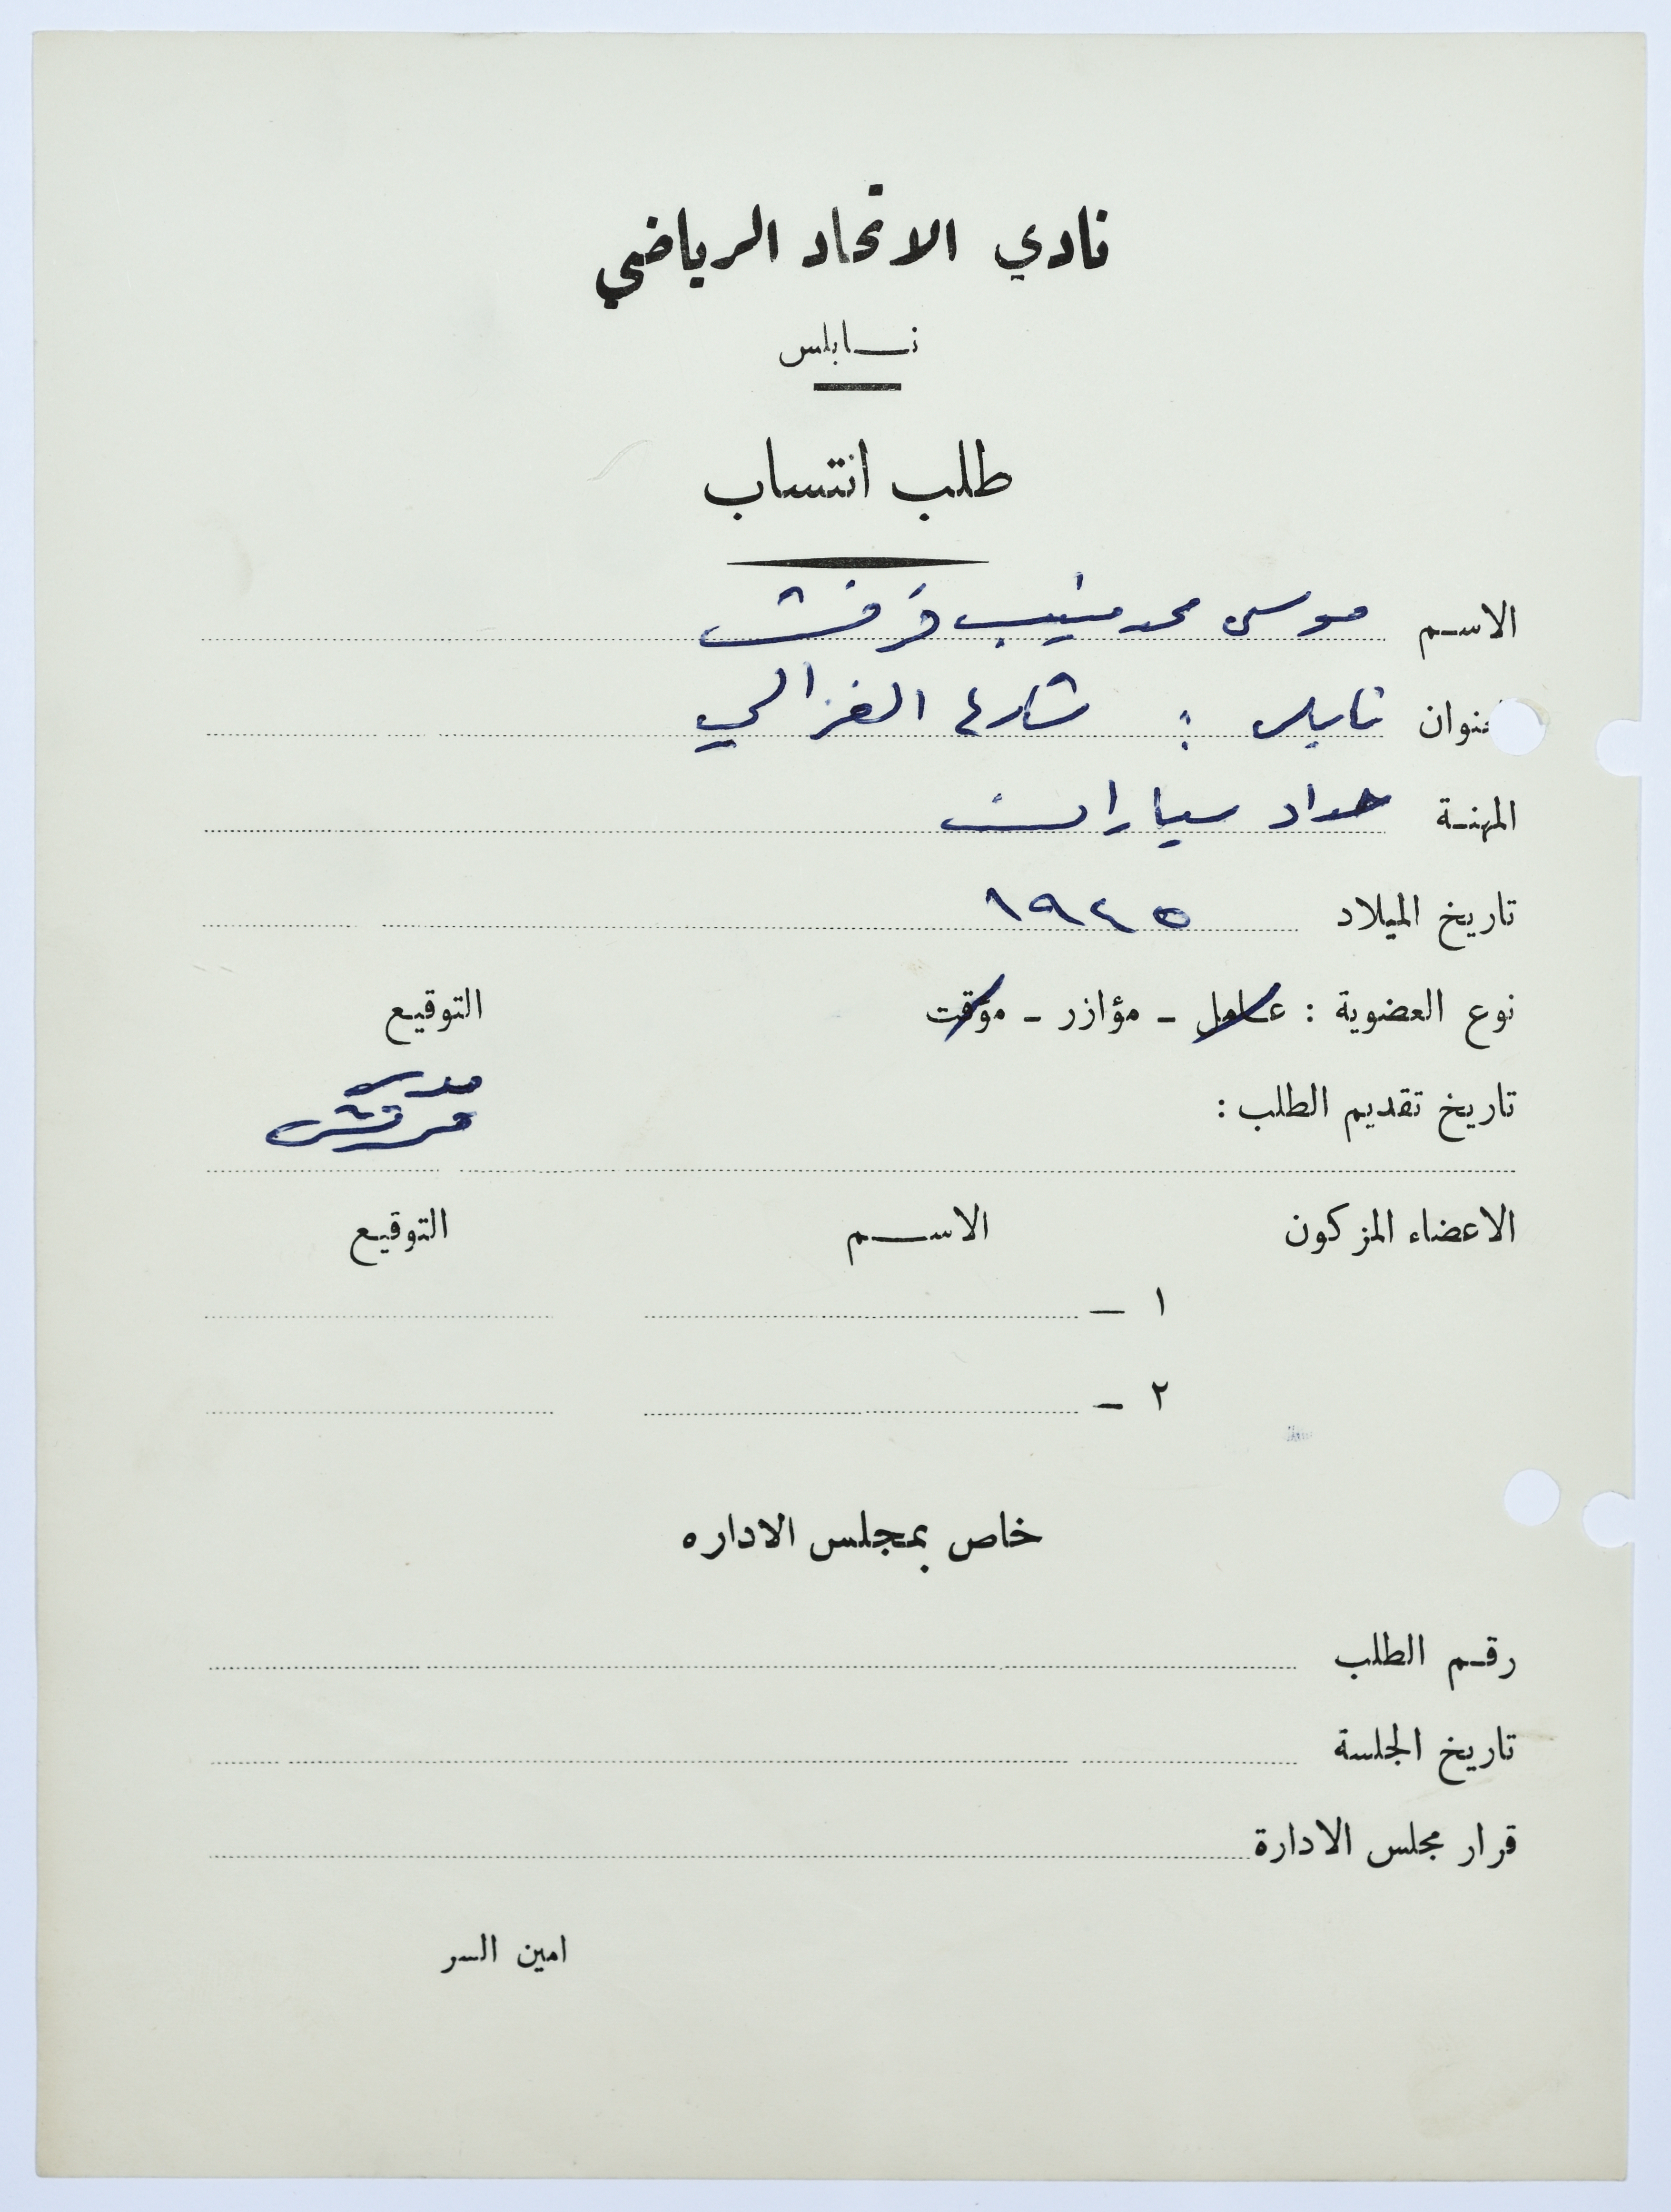 نادي الاتحاد الرياضي
نابلس
طلب انتساب
الاسم موسى محمد منيب قرقش
العنوان نابلس : شارع الغزالي
المهنة حداد سيارات
تاريخ الميلاد ١٩٤٥
نوع العضوية : عامل - مؤازر - مؤقت التوقيع
تاريخ تقديم الطلب :
الاعضاء المزكون الاسم التوقيع
١ -
٢ -
خاص بمجلس الاداره
رقم الطلب
تاريخ الجلسة
قرار مجلس الادارة
امين السر